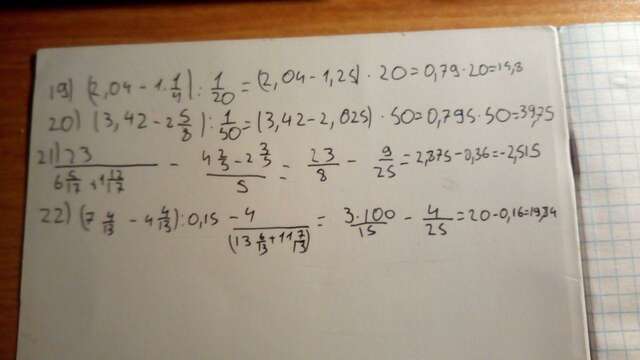 19) (2,04 - 1 1/4) : 1/20 = (2,04 - 1,25) · 20 = 0,79 · 20 = 15,8
20) (3,42 - 2 5/8) : 1/50 = (3,42 - 2,625) · 50 = 0,795 · 50 = 39,75
21) 23/(6 5/17 + 1 12/17) - (4 2/5 - 2 3/5)/5 = 23/8 - 9/25 = 2,875 - 0,36 = -2,515
22) (7 4/13 - 4 4/13) : 0,15 - 4/(13 6/13 + 11 7/13) = 3·100/15 - 4/25 = 20 - 0,16 = 19,84